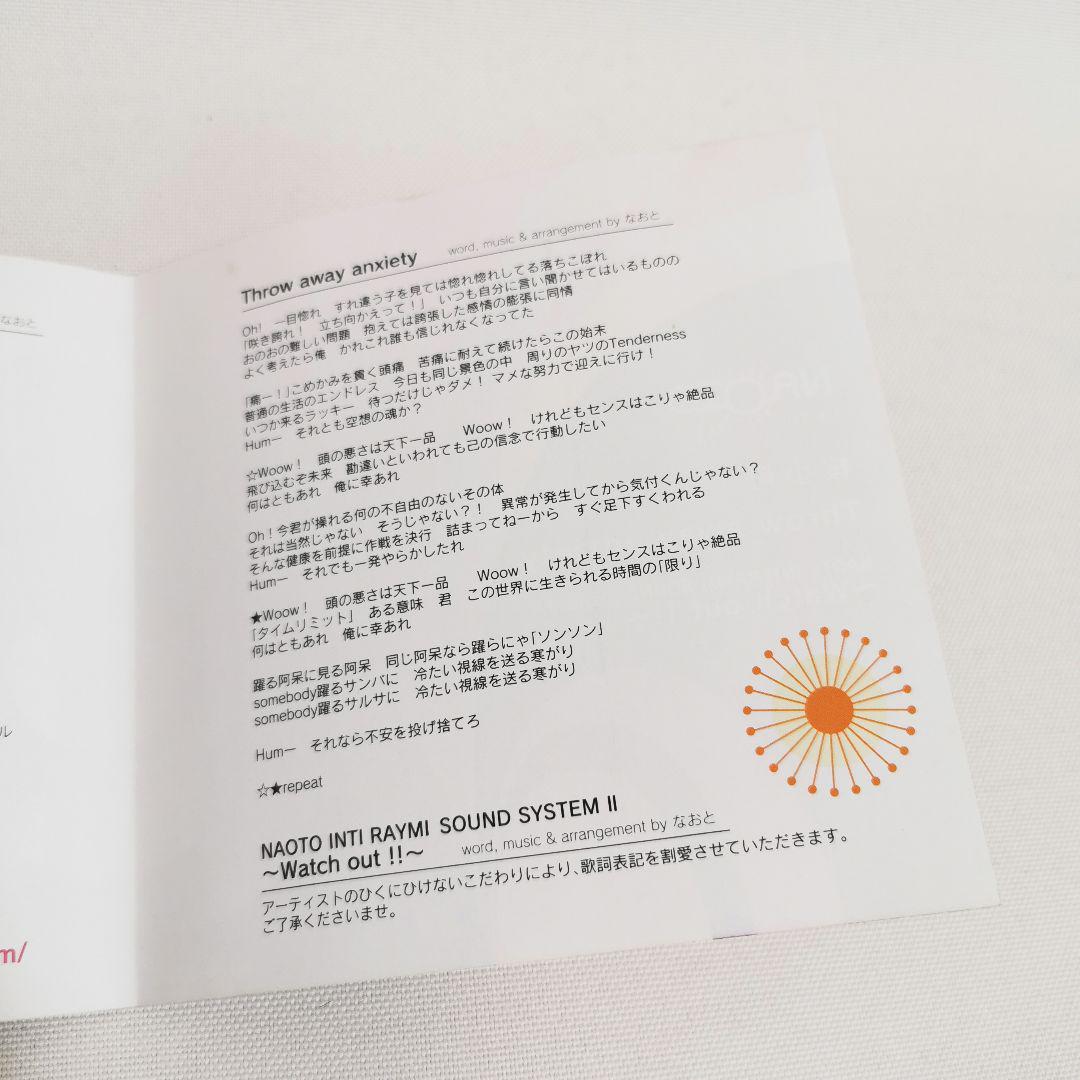 なおと
ル
m/
Throw away anxiety word, music & arrangement by なおと
Oh! 一目惚れ すれ違う子を見ては惚れ惚れしてる落ちこぼれ
「咲き誇れ! 立ち向かえって!」 いつも自分に言い聞かせてはいるものの
おのおの難しい問題 抱えては誇張した感情の膨張に同情
よく考えたら俺 かれこれ誰も信じれなくなってた
「痛ー!」こめかみを貫く頭痛 苦痛に耐えて続けたらこの始末
普通の生活のエンドレス 今日も同じ景色の中 周りのヤツのTenderness
いつか来るラッキー 待つだけじゃダメ! マメな努力で迎えに行け!
Humー それとも空想の魂か?
☆Woow! 頭の悪さは天下一品 Woow! けれどもセンスはこりゃ絶品
飛び込むぞ未来 勘違いといわれても己の信念で行動したい
何はともあれ 俺に幸あれ
Oh!今君が操れる何の不自由のないその体
それは当然じゃない そうじゃない?! 異常が発生してから気付くんじゃない?
そんな健康を前提に作戦を決行 詰まってねーから すぐ足下すくわれる
Humー それでも一発やらかしたれ
★Woow! 頭の悪さは天下一品 Woow! けれどもセンスはこりゃ絶品
「タイムリミット」 ある意味 君 この世界に生きられる時間の「限り」
何はともあれ 俺に幸あれ
踊る阿呆に見る阿呆 同じ阿呆なら躍らにゃ「ソンソン」
somebody躍るサンバに 冷たい視線を送る寒がり
somebody躍るサルサに 冷たい視線を送る寒がり
Humー それなら不安を投げ捨てろ
☆★repeat
NAOTO INTI RAYMI SOUND SYSTEM II
~Watch out !!~ word, music & arrangement by なおと
アーティストのひくにひけないこだわりにより、歌詞表記を割愛させていただきます。
ご了承くださいませ。